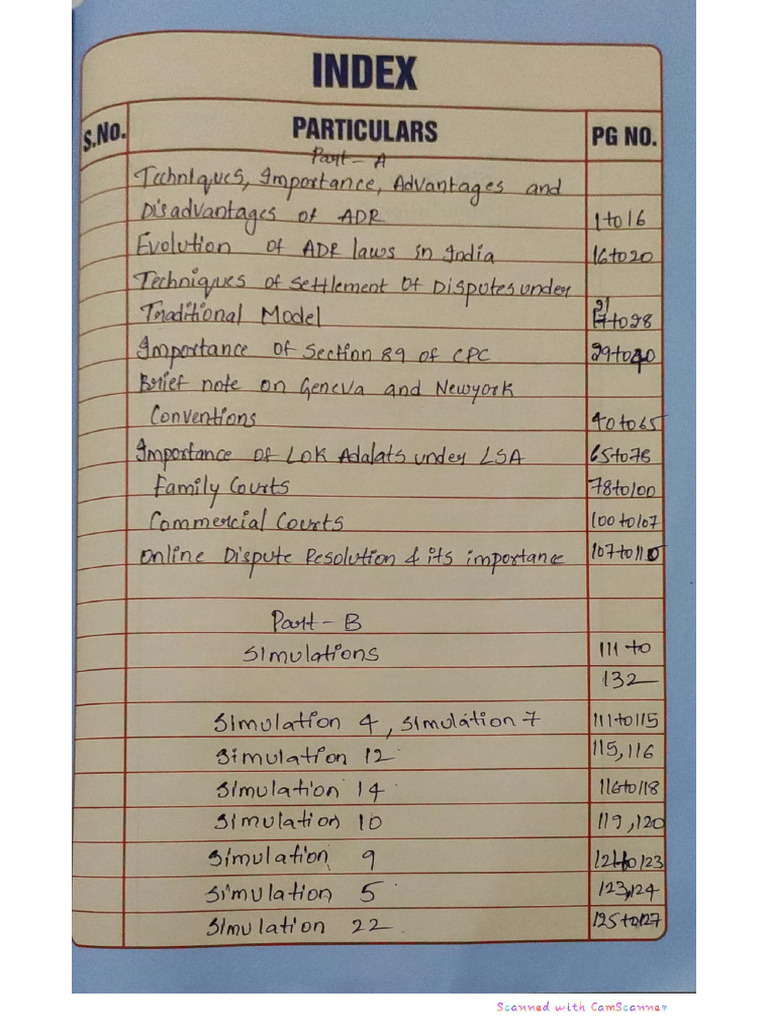 INDEX
S.No. PARTICULARS PG NO.
Part - A
Techniques, Importance, Advantages and
Disadvantages of ADR 1 to 16
Evolution of ADR laws in India 16 to 20
Techniques of settlement of Disputes under
21
Traditional Model to 28
Importance of Section 89 of CPC 29 to 40
Brief note on Geneva and Newyork
Conventions 40 to 65
Importance of Lok Adalats under LSA 65 to 78
Family Courts 78 to 100
Commercial Courts 100 to 107
Online Dispute Resolution & its importance 107 to 110
Part - B
Simulations 111 to
132
Simulation 4, Simulation 7 111 to 115
Simulation 12 115, 116
Simulation 14 116 to 118
Simulation 10 119, 120
Simulation 9 121 to 123
Simulation 5 123, 124
Simulation 22 125 to 127
Scanned with CamScanner